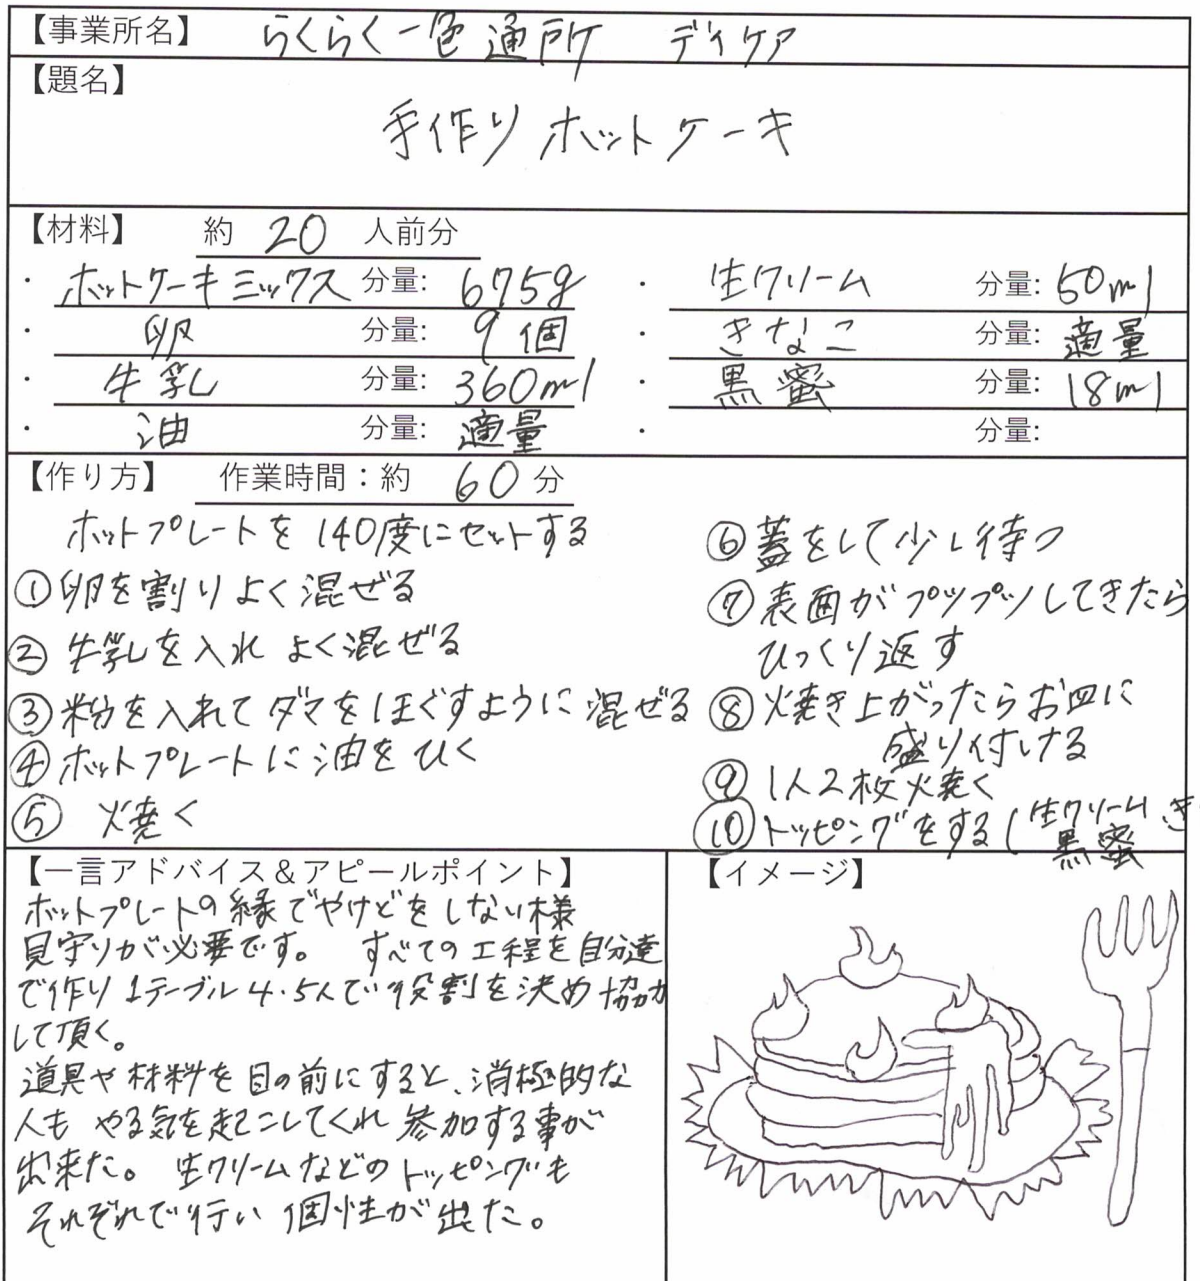 【事業所名】 らくらく一色通所 デイケア
【題名】
手作りホットケーキ
【材料】 約 20 人前分
・ ホットケーキミックス 分量: 675g ・ 生クリーム 分量: 50ml
・ 卵 分量: 9個 ・ きなこ 分量: 適量
・ 牛乳 分量: 360ml ・ 黒蜜 分量: 18ml
・ 油 分量: 適量 ・ 分量:
【作り方】 作業時間：約 60 分
ホットプレートを140度にセットする
①卵を割りよく混ぜる
②牛乳を入れ よく混ぜる
③粉を入れてダマをほぐすように混ぜる
④ホットプレートに油をひく
⑤ 焼く
⑥蓋をして少し待つ
⑦表面がプツプツしてきたら
ひっくり返す
⑧焼き上がったらお皿に
盛り付ける
⑨1人2枚焼く
⑩トッピングをする(生クリーム き
黒蜜
【一言アドバイス＆アピールポイント】
ホットプレートの縁でやけどをしない様
見守りが必要です。 すべての工程を自分達
で作り1テーブル4.5人で役割を決め協力
して頂く。
道具や材料を目の前にすると、消極的な
人も やる気を起こしてくれ参加する事が
出来た。 生クリームなどのトッピングも
それぞれで行い個性が出た。
【イメージ】